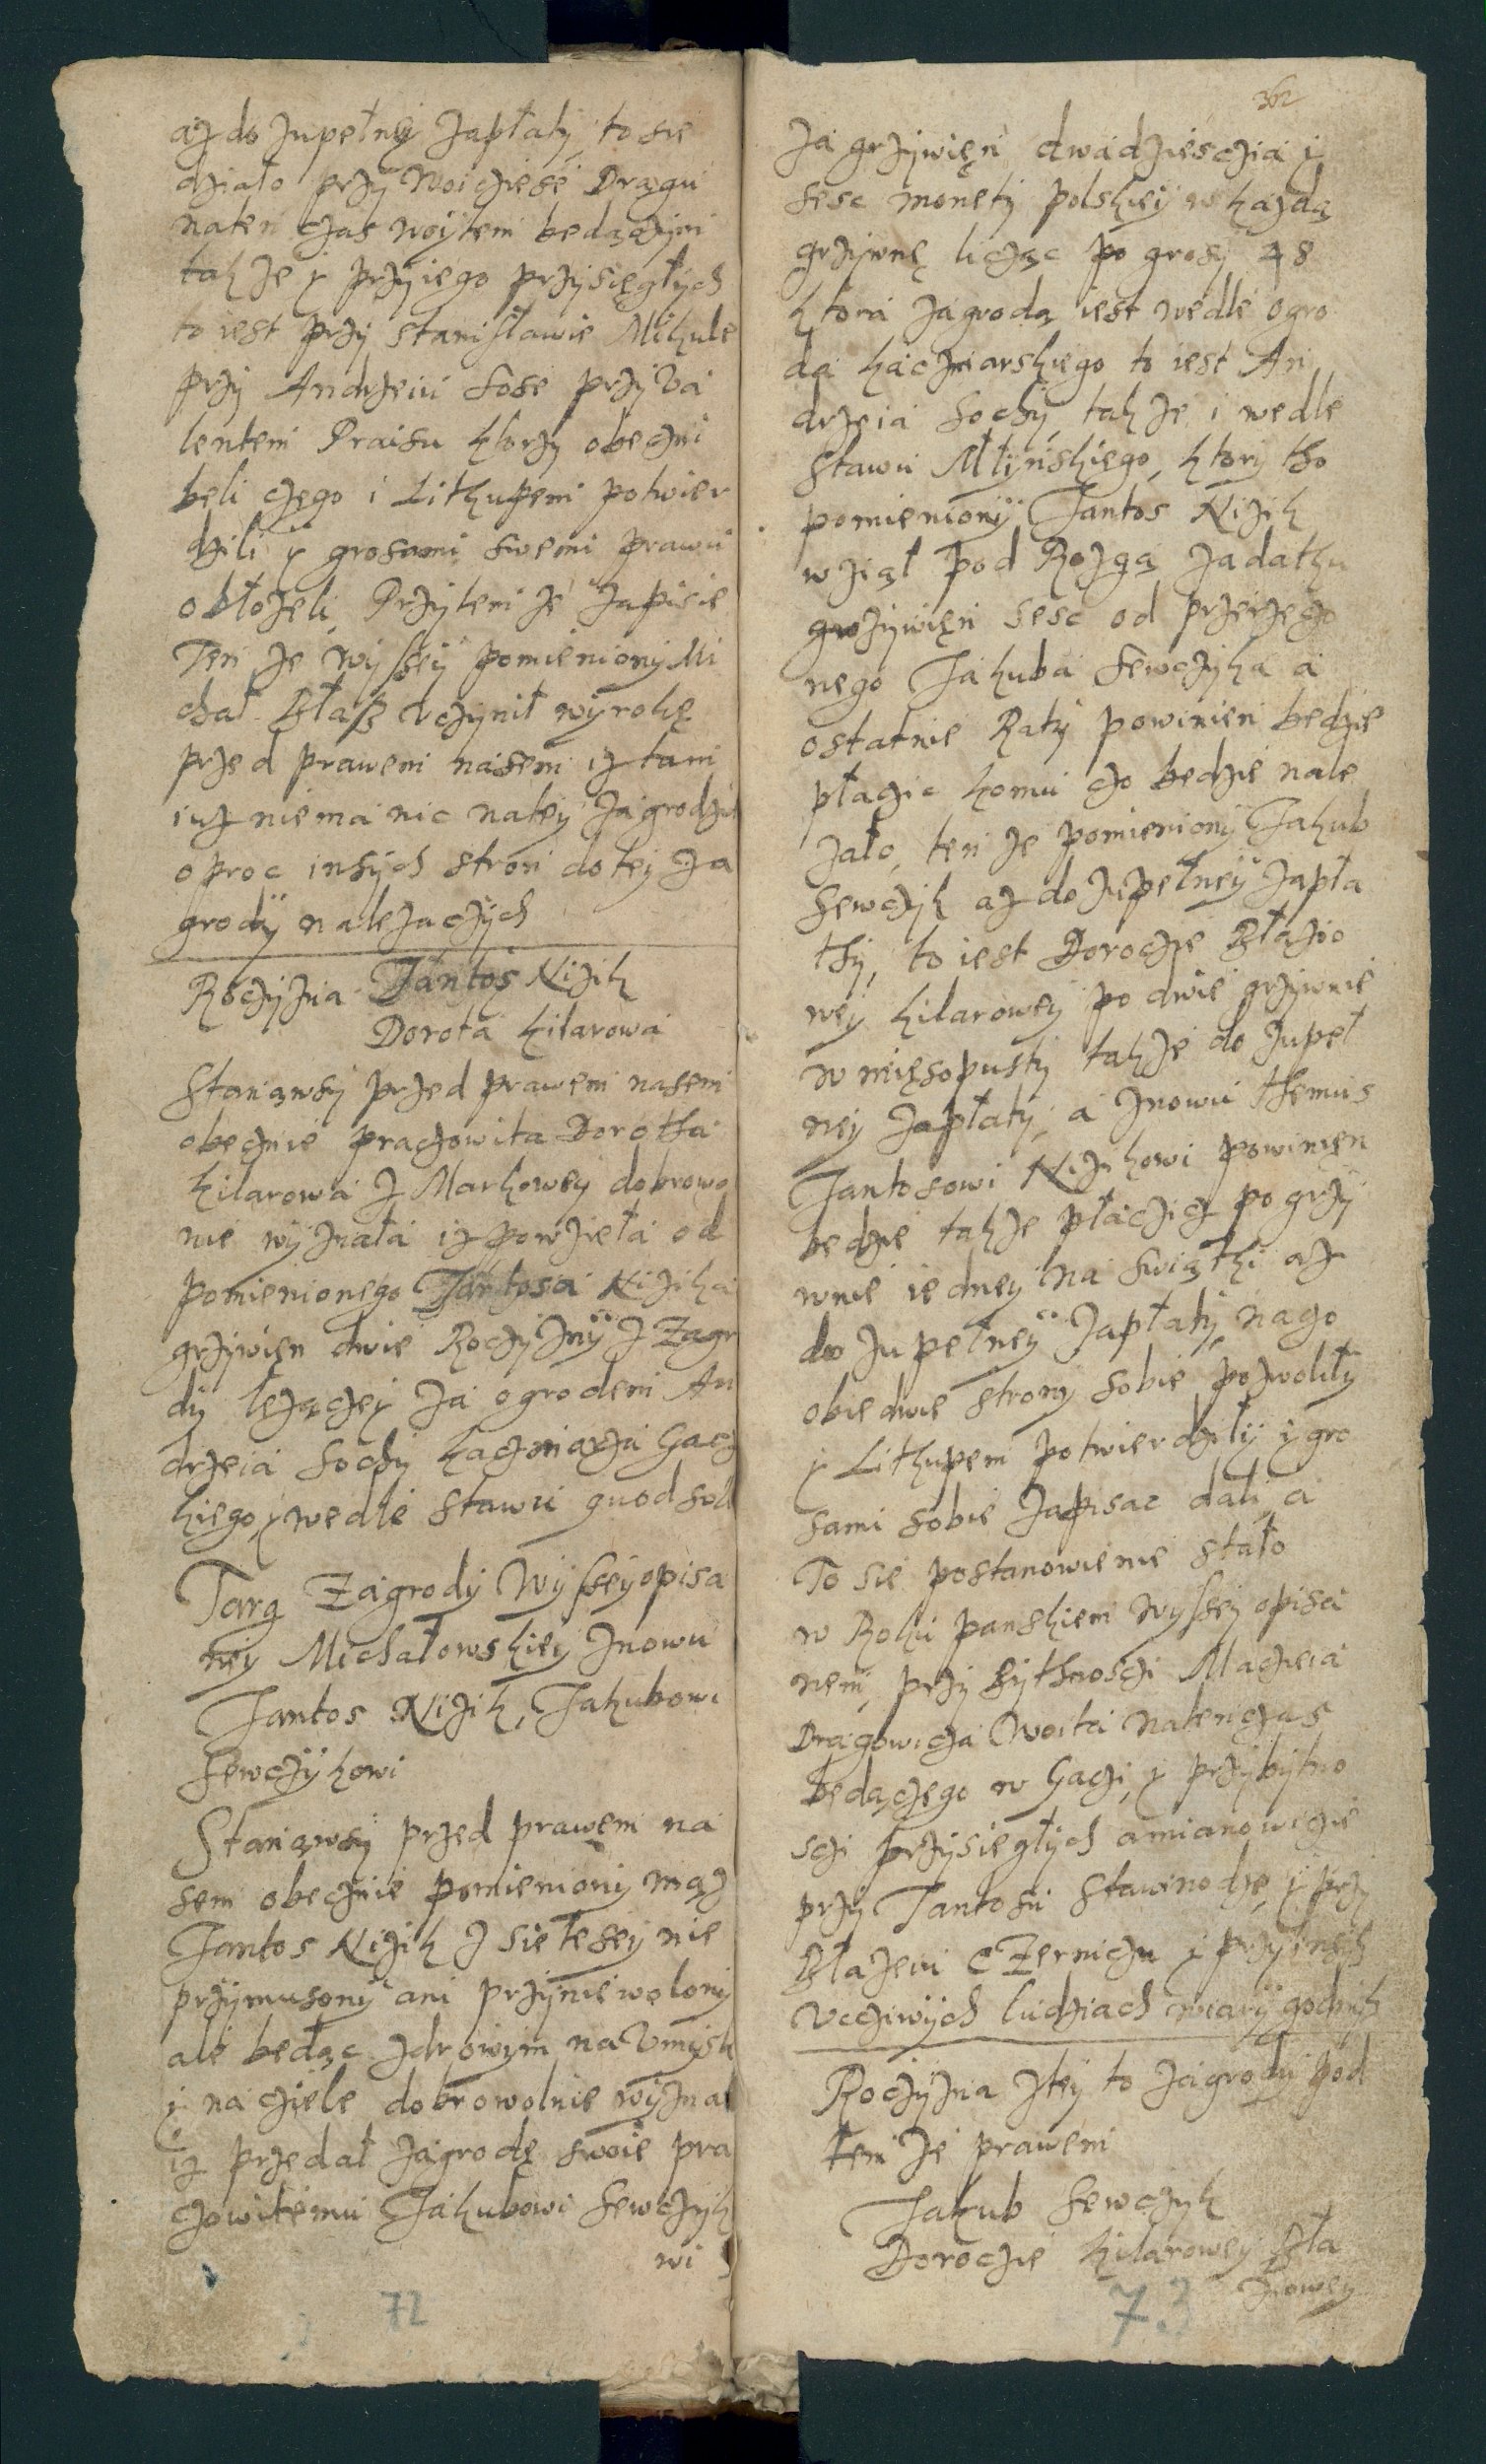 aż do zupełney zapłaty, to sie
działo przy Woiciese Drągu
naten czas woytem będączym
takze y przy iego przysięgłych
to iest przy stanisławie Mikule
przy Andrzeiu Sose przy Va
lentem Praisu ktorzy obeczni
beli czego i Lithupem potwier
dzili y grosami swemi prawu
obłozeli, Przytem ze zapisie
Ten ze wyssey pomieniony Mi
chał Błasz Vczynił wyrokę
przed prawem nasem iz tam
iuz niema nic natey zagrodzie
oproc insych stron do tey za
grody nalezaczych
Roczyzna Jantos Nizik
Dorota kilarowa
Stanąwsy przed prawem nasem
obecznie praczowita Dorotha
kilarowa z Markowey dobrowo
nie wyznała iz powzieła od
pomienionego Jantosa Nizika
grzywien dwie Roczyzny z Zagr
dy lezączey za ogrodem An
drzeia Sochy kaczmarza Gacz
kiego, y wedle stawu quod sol
Targ Zagrody Wyssey opisa
ney Michałowskiey znowu
Jantos Nizik, Jakubowi
Sewczykowi
Stanąwsy przed prawem na
sem obecznie pomieniony mąz
Jantos Nizik z sietesey nie
przymusony ani przyniewolony
ale bedąc zdrowym na Vmysle
y na cziele dobrowolnie wyznał
iz przedał zagrodę swoię pra
czowitemu Jakubowi Sewczyk
wi
362
za grzywień dwadziesczia y
sesc monety polskiey w kazdą
grzywnę licząc po grosy 48
ktora zagroda iest wedle ogro
da kaczmarskiego to iest An
drzeia Sochy, takze i wedle
stawu Młyńskiego, ktory tho
pomieniony Jantos Nizik
wziął pod Rozgą zadatku
grzywień sesc od przerzeczo
nego Jakuba Sewczyka a
ostatnie Raty powinien bedzie
płaczic komu czo bedzie nale
zało, ten ze pomieniony Jakub
Sewczyk az do zupełney zapła
thy, to iest Doroczie Błazio
wey kilarowey po dwie grzywnie
w mięsopusty takze do zupeł
ney zapłaty, a znowu themus
Jantosowi Nizikowi powinien
bedzie takze płaczicz po grzy
wnie iedney na swiąthki az
do zupełney zapłaty, na czo
obiedwie strony sobie pozwoliły
y Lithupem potwierdziły y gro
sami sobie zapisac dali, a
To sie postanowienie stało
w Roku panskiem wyssey opisa
nem, przy bythnosczi Maczieia
Drągowicza Woita natenczas
bedączego w Gaczi, y przy bytno
sczi przysiegłych a mianowiczie
przy Jantosu Stawinodze, y przy
Błazeiu CZerniczu y przy insych
Vcziwych ludziach wiary godnych
Roczyzna z tey to zagrody pod
tem ze prawem
Jakub Sewczyk
Doroczie kilarowey Bła
ziowey
72
73